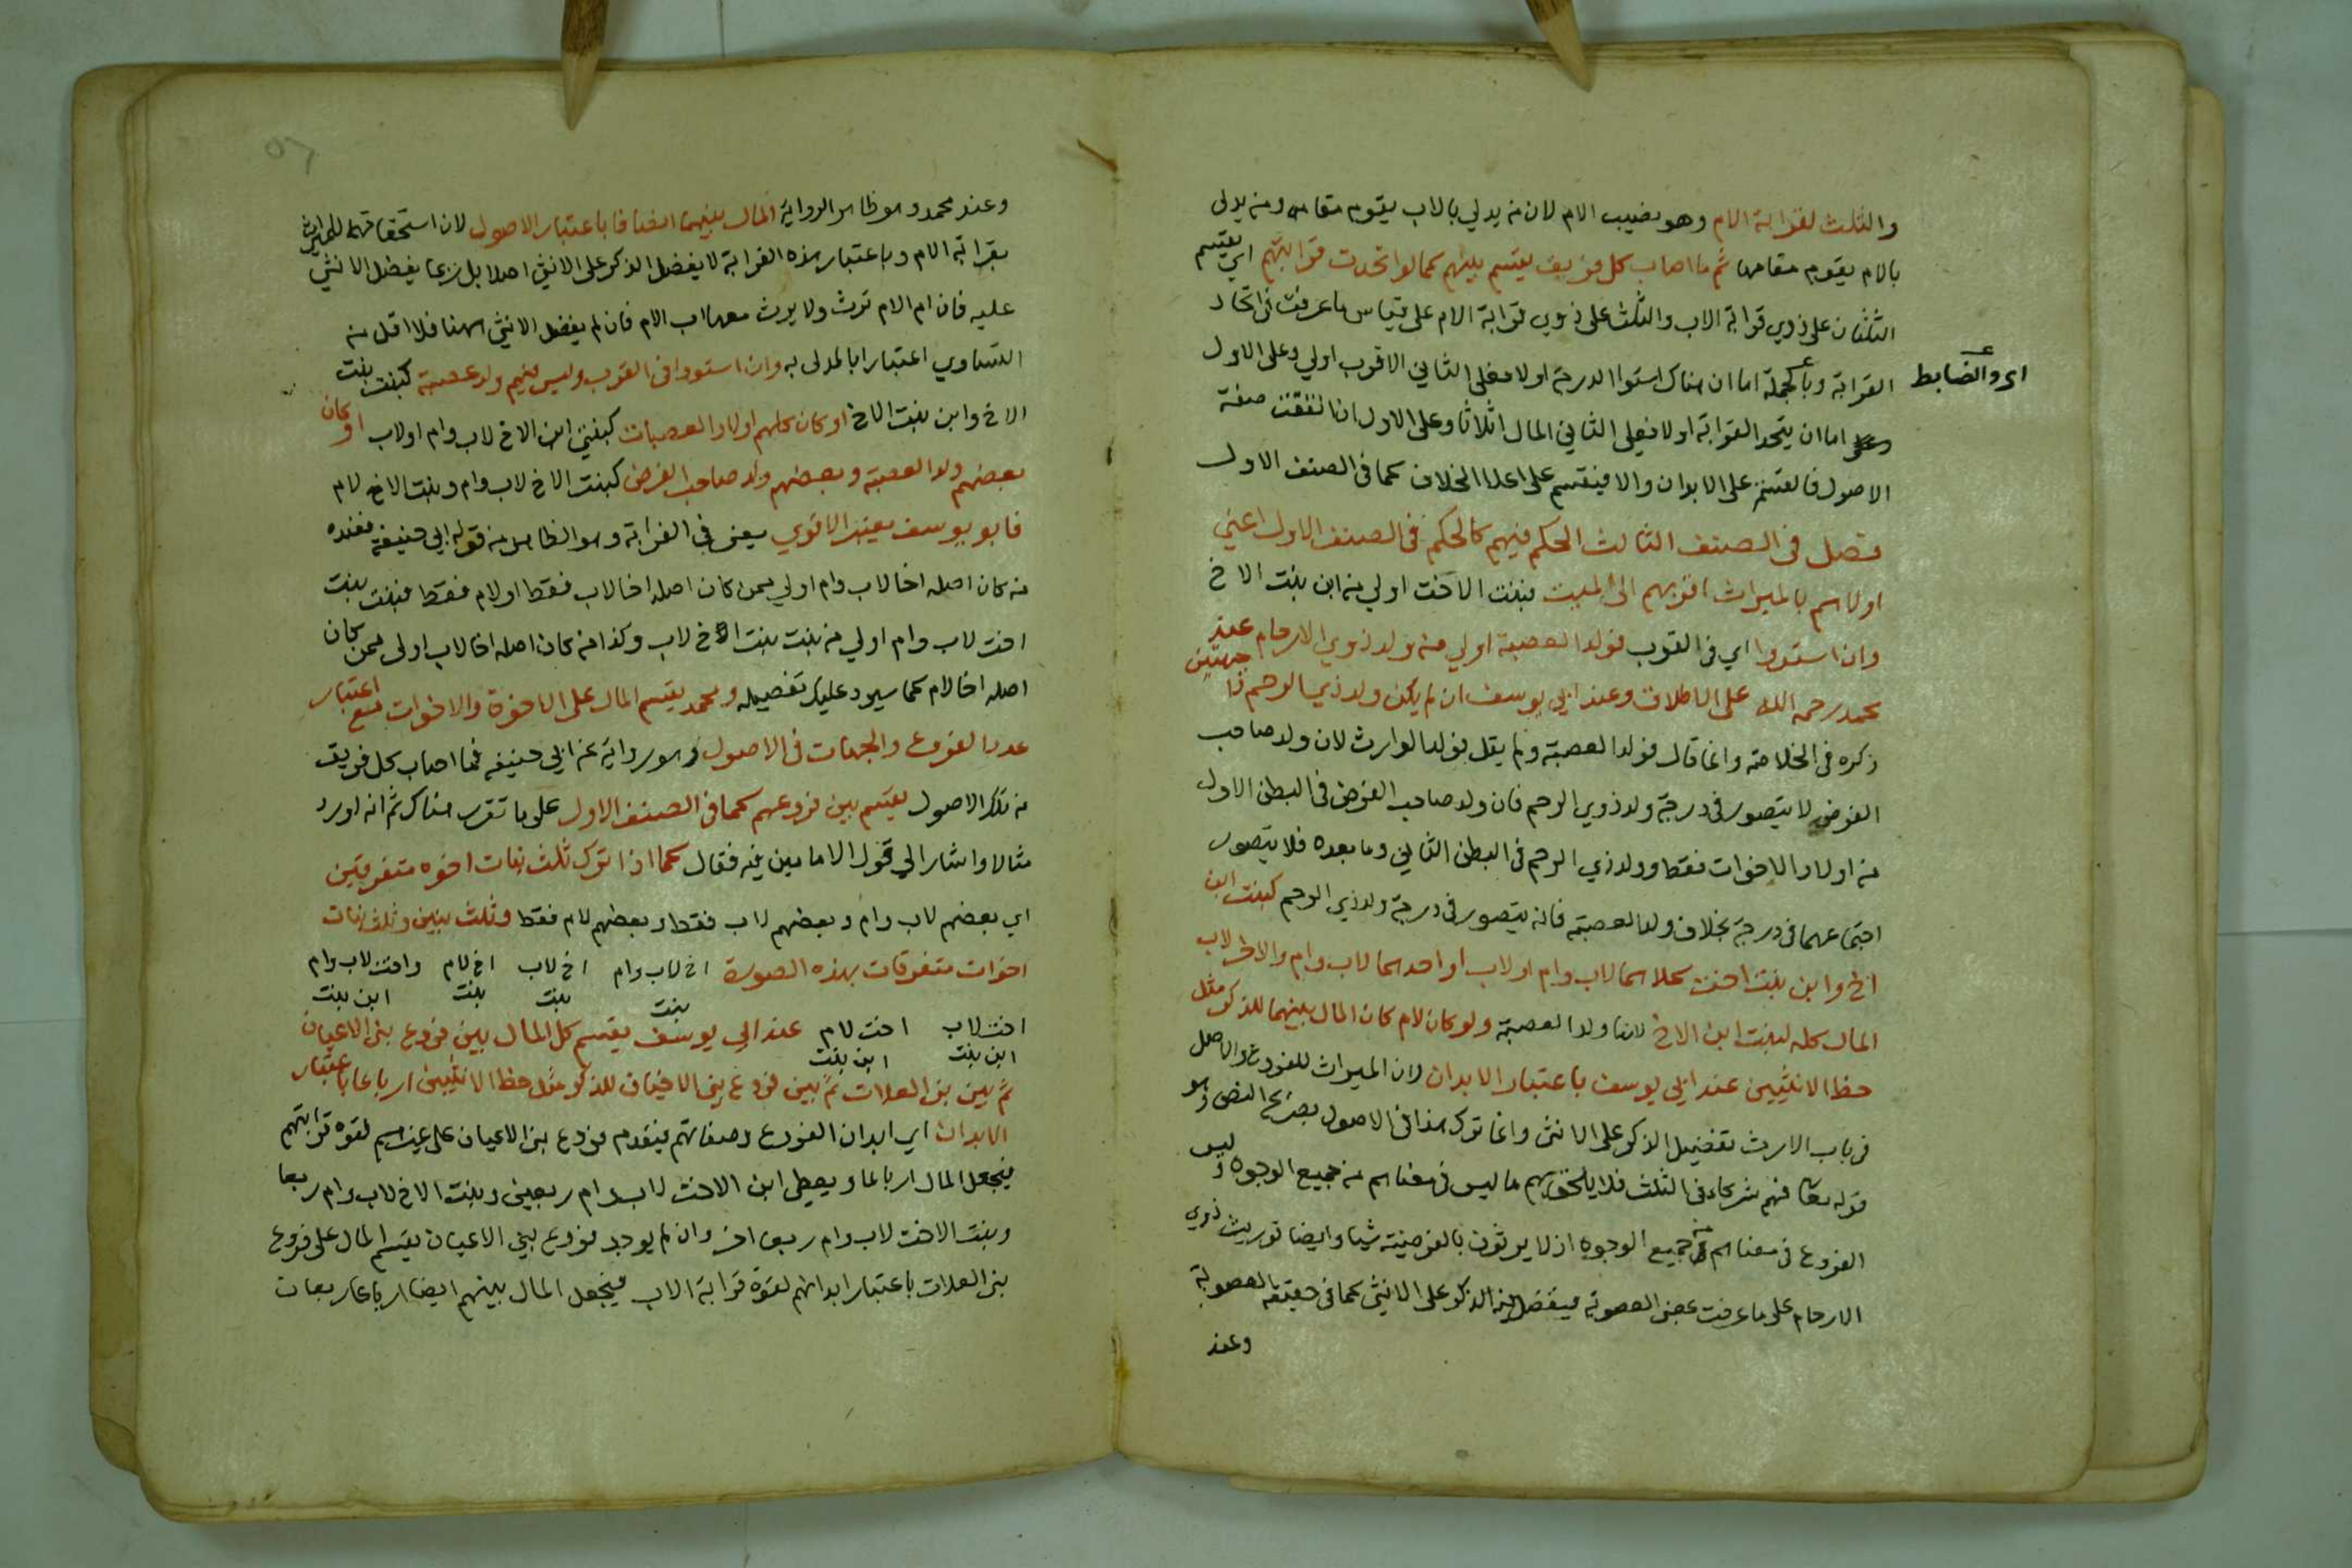 والثلث لقرابة الام وهو نصيب الام لان من يدلي بالاب يقوم مقامه ومن يدلى
بالام يقوم مقامها ثم ما اصاب كل فريق يقسم بينهم كما لو اتحدت قرابتهم اي يقسم
الثلثان على ذوي قرابة الاب والثلث على ذوي قرابة الام على قياس ما عرفت في اتحاد
القرابة وبالجملة اما ان هناك استوا الدرجة اولا فعلى الثاني الاقرب اولي وعلى الاول
اى والضابط
اما ان يتحد القرابة اولا فعلى الثاني المال اثلاثا وعلى الاول ان اتفقت صفة
الاصول فالقسمة على الابدان والا فيقسم على اعلا الخلاف كما في الصنف الاول
فصل فى الصنف الثالث الحكم فيهم كالحكم فى الصنف الاول اعني
اولاهم بالميراث اقربهم الى الميت فبنت الاخت اولي من ابن بنت الاخ
وان استووا اي في القرب فولد العصبة اولي من ولد ذوي الارحام عند
محمد رحمه الله على الاطلاق وعند ابي يوسف ان لم يكن ولد ذي الرحم ذا جهتين
ذكره في الخلاصة وانما قال فولد العصبة ولم يقل فولد الوارث لان ولد صاحب
الفرض لا يتصور في درجة ولد ذوي الرحم فان ولد صاحب الفرض في البطن الاول
من اولاد الاخوات فقط وولد ذي الرحم في البطن الثاني وما بعده فلا يتصور
اجتماعهما في درجة بخلاف ولد العصبة فانه يتصور في درجة ولد ذي الرحم كبنت ابن
اخ وابن بنت اخت كلاهما لاب وام اولاب او احدهما لاب وام والاخر لاب
المال كله لبنت ابن الاخ لانها ولد العصبة ولو كان لام كان المال بينهما للذكر مثل
حظ الانثيين عند ابي يوسف باعتبار الابدان لان الميراث للفروع والاصل
فى باب الارث تفضيل الذكر على الانثى وانما ترك هذا في الاصول بصريح النص وهو
قوله تعالى فهم شركاء في الثلث فلا يلحق بهم ما ليس في معناهم من جميع الوجوه وليس
الفروع في معناهم من جميع الوجوه اذ لا يرثون بالفرضية شيا وايضا توريث ذوي
الارحام على ما عرفت بمعنى العصوبة فيفضل فيه الذكر على الانثى كما في حقيقة العصوبة
وعند
وعند محمد وهو ظاهر الرواية المال بينهما انصافا باعتبار الاصول لان استحقاقهما للميراث
بقرابة الام وباعتبار هذه القرابة لا يفضل الذكر على الانثى اصلا بل ربما يفضل الانثى
عليه فان ام الام ترث ولا يرث معها اب الام فان لم يفضل الانثى ههنا فلا اقل من
التساوي اعتبارا بالمدلى به وان استووا في القرب وليس فيهم ولد عصبة كبنت بنت
الاخ وابن بنت الاخ او كان كلهم اولاد العصبات كبنتي ابن الاخ لاب وام اولاب او كان
بعضهم ولد العصبة وبعضهم ولد صاحب الفرض كبنت الاخ لاب وام وبنت الاخ لام
فابو يوسف يعتبر الاقوي يعنى في القرابة وهو الظاهر من قول ابي حنيفة فعنده
من كان اصله اخا لاب وام اولي ممن كان اصله اخا لاب فقط او لام فقط فبنت بنت
اخت لاب وام اولي من بنت بنت الاخ لاب وكذا من كان اصله اخا لاب اولى ممن كان
اصله اخا لام كما سيرد عليك تفصيله ومحمد يقسم المال على الاخوة والاخوات مع اعتبار
عدد الفروع والجهات في الاصول وهو رواية عن ابي حنيفة فما اصاب كل فريق
من تلك الاصول يقسم بين فروعهم كما فى الصنف الاول على ما تقرر هناك ثم انه اورد
مثالا واشار الي قول الامامين فيه فقال كما اذا ترك ثلث بنات اخوه متفرقين
اي بعضهم لاب وام وبعضهم لاب فقط وبعضهم لام فقط وثلث بنين وثلث بنات
اخوات متفرقات بهذه الصورة اخ لاب وام اخ لاب اخ لام واخت لاب وام
بنت بنت بنت ابن بنت
اخت لاب اخت لام عند ابي يوسف يقسم كل المال بين فروع بنى الاعيان
ابن بنت ابن بنت
ثم بين بنى العلات ثم بين فروع بني الاخياف للذكر مثل حظ الانثيين ارباعا باعتبار
الابدان اي ابدان الفروع وصفاتهم فيقدم فروع بني الاعيان على غيرهم لقوة قرابتهم
فيجعل المال ارباعا ويعطى ابن الاخت لاب وام ربعين وبنت الاخ لاب وام ربعا
وبنت الاخت لاب وام ربعا اخر وان لم يوجد فروع بني الاعيان يقسم المال على فروع
بنى العلات باعتبار ابدانهم لقوة قرابة الاب فيجعل المال بينهم ايضا ارباعا ربعان